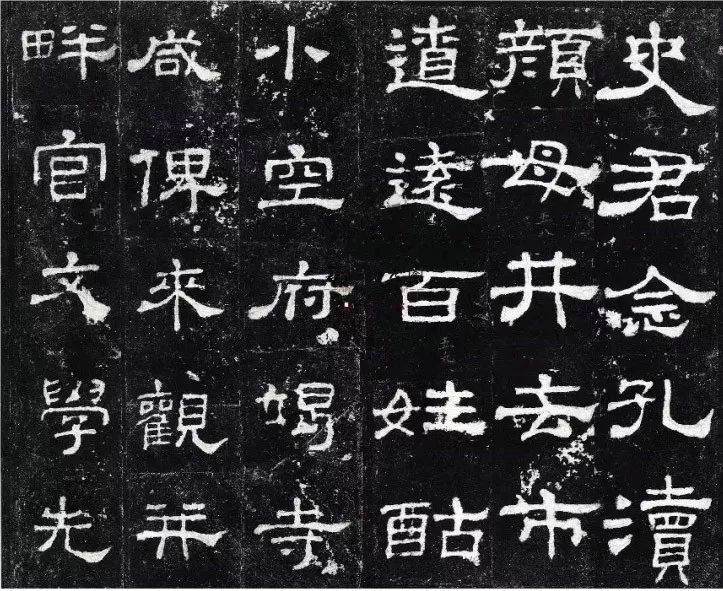 史君念孔瀆
顏母井去市
遼遠百姓酤
小空府竭寺
咸俾來觀并
畔官文學先